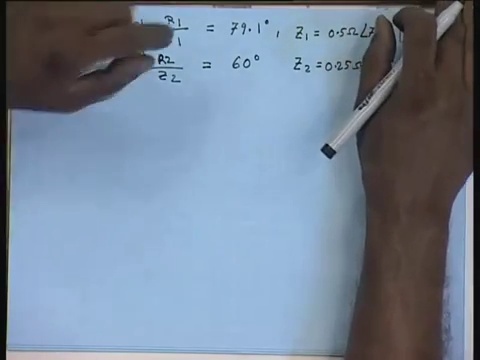 R1/1 = 79.1°, Z1 = 0.5Ω∠
R2/Z2 = 60° Z2 = 0.25Ω